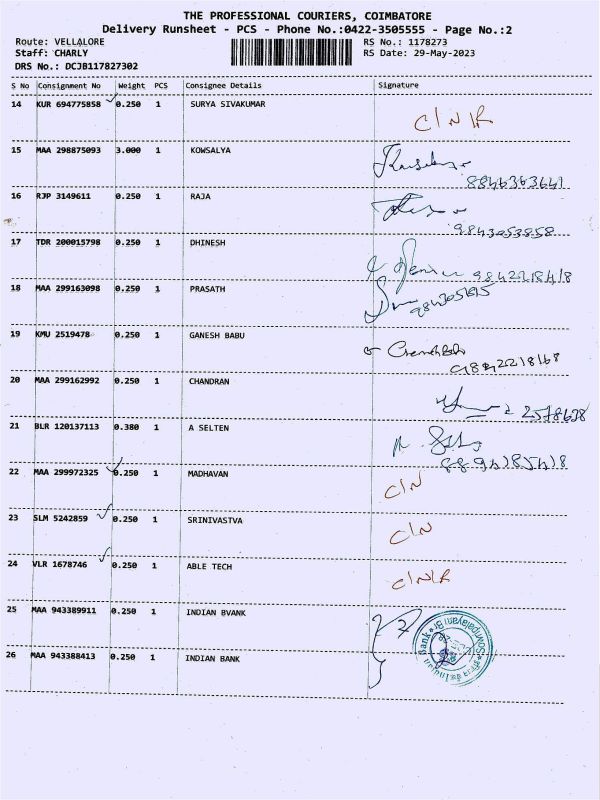 THE PROFESSIONAL COURIERS, COIMBATORE
Delivery Runsheet - PCS - Phone No.:0422-3505555 - Page No.:2
Route: VELLALORE RS No.: 1178273
Staff: CHARLY RS Date: 29-May-2023
DRS No.: DCJB117827302
S No Consignment No Weight PCS Consignee Details Signature
14 KUR 694775858 0.250 1 SURYA SIVAKUMAR
C/N/R
15 MAA 298875093 3.000 1 KOWSALYA
16 RJP 3149611 0.250 1 RAJA
9843053858
17 TDR 200015798 0.250 1 DHINESH
18 MAA 299163098 0.250 1 PRASATH
19 KMU 2519478 0.250 1 GANESH BABU
20 MAA 299162992 0.250 1 CHANDRAN
21 BLR 120137113 0.380 1 A SELTEN
22 MAA 299972325 0.250 1 MADHAVAN
C/N
23 SLM 5242859 0.250 1 SRINIVASTVA
C/N
24 VLR 1678746 0.250 1 ABLE TECH
C/N/R
25 MAA 943389911 0.250 1 INDIAN BVANK
26 MAA 943388413 0.250 1 INDIAN BANK